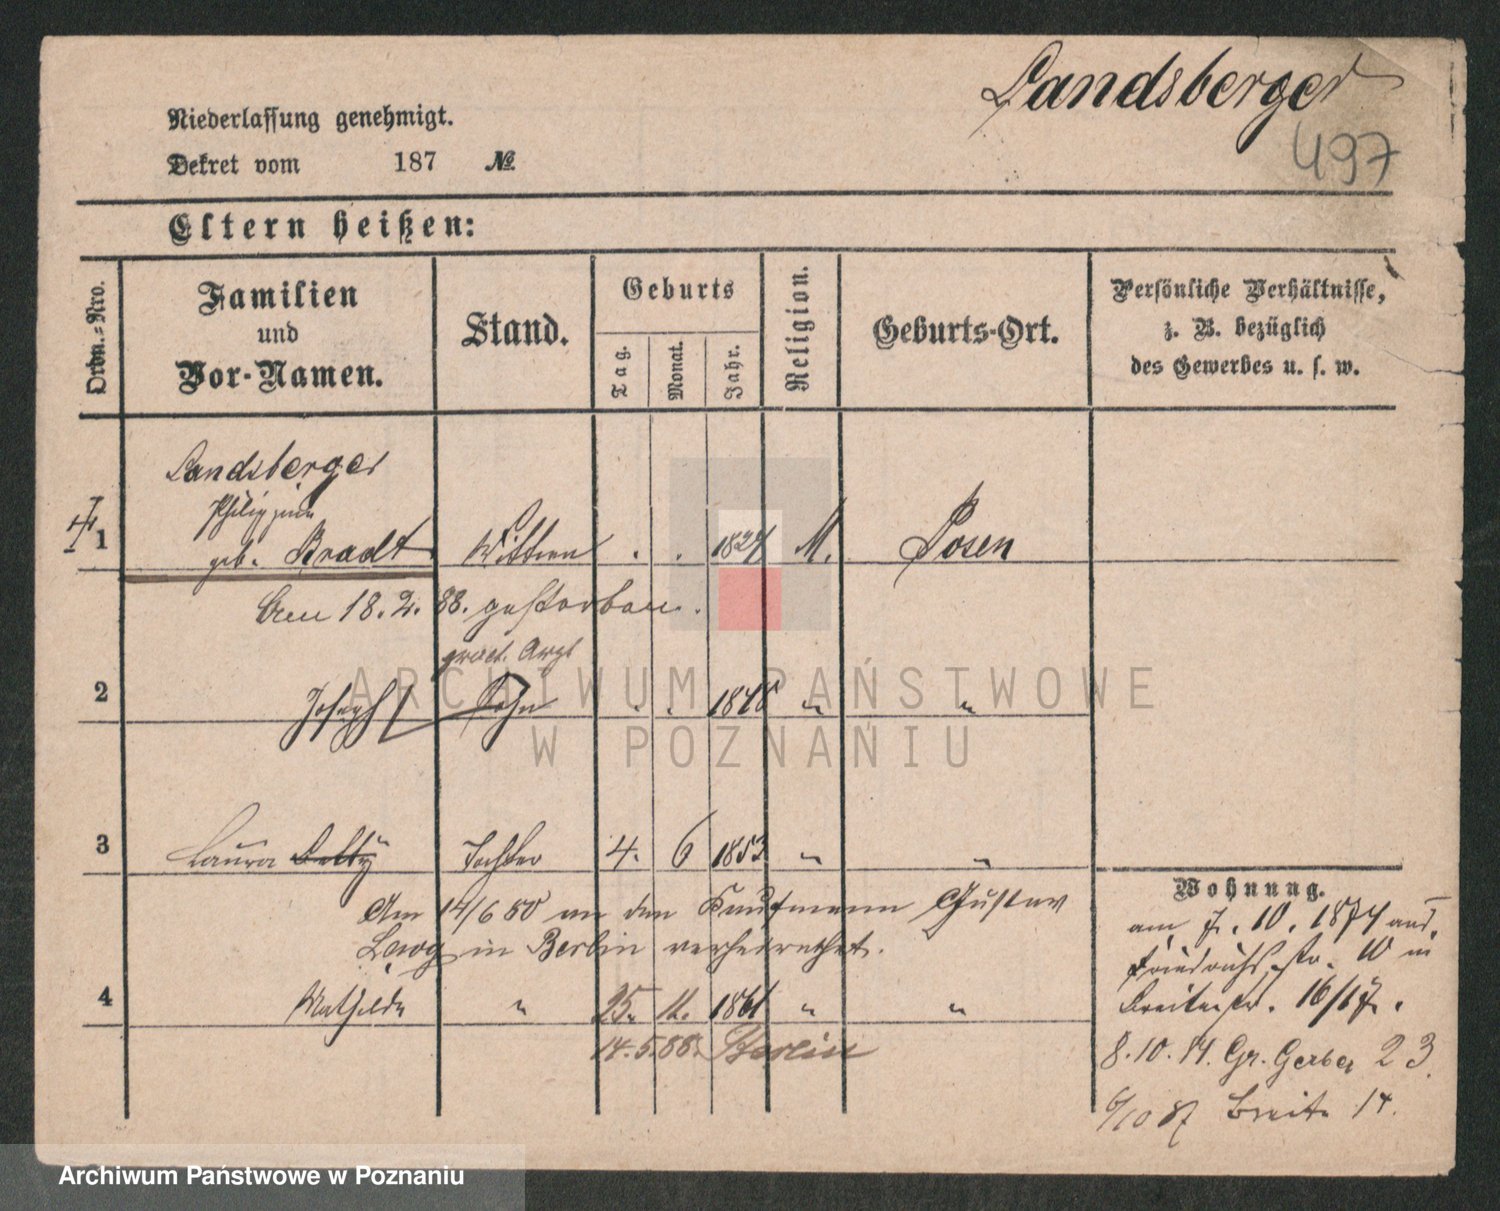 Landsberger
497
Niederlassung genehmigt.
Dekret vom 187 №
Eltern heißen:
Ordn.-Nro.
Familien
und
Vor-Namen.
Stand.
Geburts
Tag.
Monat.
Jahr.
Religion.
Geburts-Ort.
Persönliche Verhältnisse,
z. B. bezüglich
des Gewerbes u. s. w.
Landsberger
Philippine
1 geb. Bradt Wittwe . . 1827 M. Posen
Am 18.2.88. gestorben.
pract. Arzt
2 Joseph Sohn . . 1848 " "
3 Laura Betty Tochter 4. 6 1853 " "
Am 14/6 80 an den Kaufmann Gustav
in Berlin verheirathet.
4 Mathilde " 25. 11. 1861 " "
14.5.88. Berlin
Wohnung.
am 7. 10. 1874 aus
Friedrichsstr. 10 in
Breitestr. 16/17.
8.10.84. Gr. Gerber 23.
6/10 87 Breite 14.
ARCHIWUM PAŃSTWOWE
W POZNANIU
Archiwum Państwowe w Poznaniu